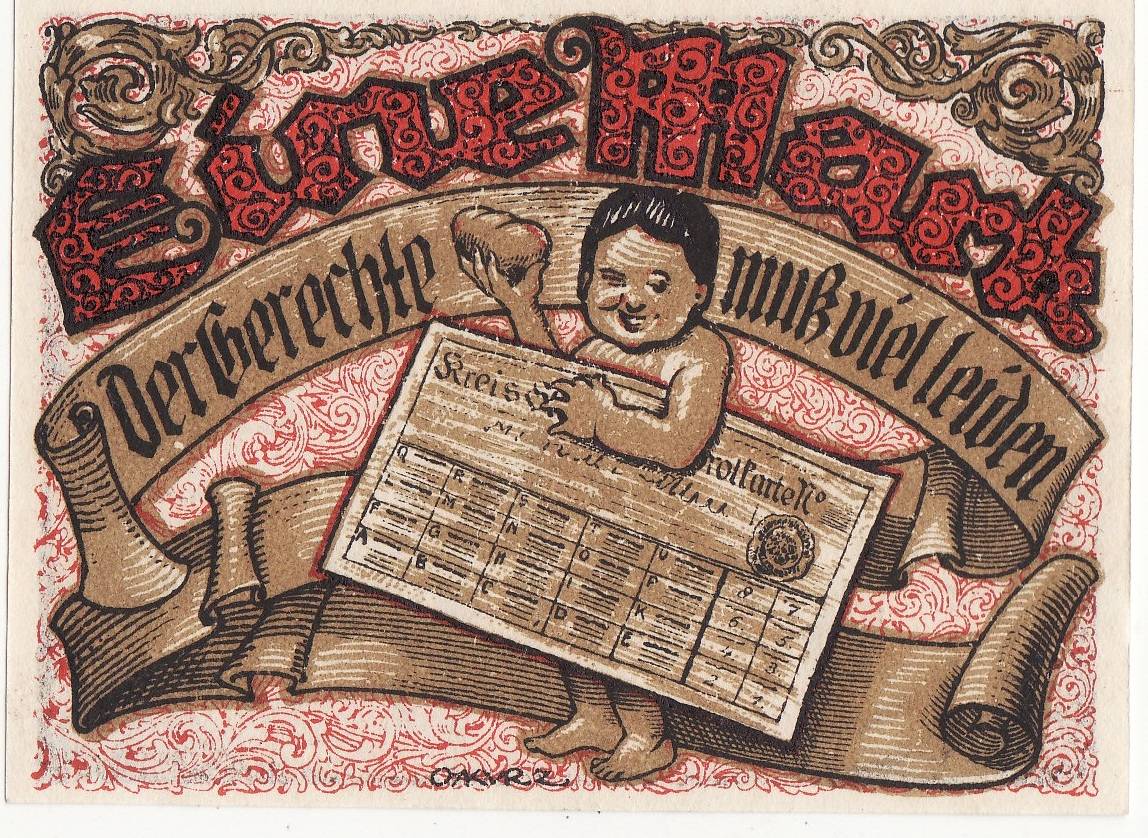 Eine Mark
Der Gerechte muß viel leiden
Kreis
No
Q R S T U
L M N O P 8 7
F G H I K 6 5
A B C D E 4 3
2 1